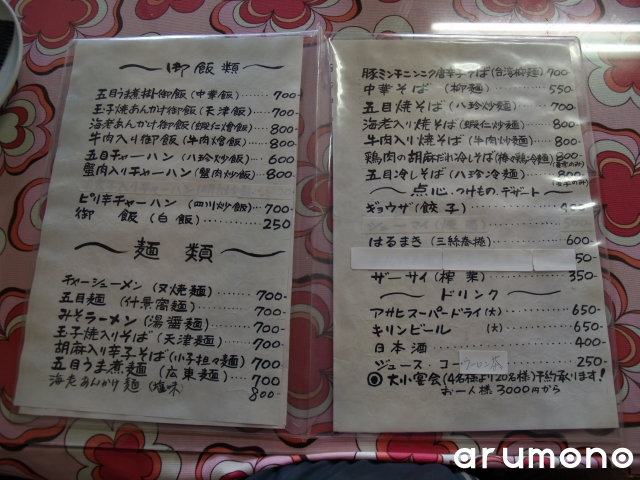 御飯類
五目うま煮掛御飯(中華飯)‥‥‥700-
玉子焼あんかけ御飯(天津飯)‥‥‥700-
海老あんかけ御飯(蝦仁燴飯)‥‥‥800-
牛肉入り御飯(牛肉燴飯)‥‥‥800-
五目チャーハン(八珍炒飯)‥‥‥600
蟹肉入りチャーハン(蟹肉炒飯)‥‥‥800-
ピリ辛チャーハン(四川炒飯)‥‥‥700-
御飯(白飯)‥‥‥250
麺類
チャーシューメン(叉焼麺)‥‥‥700-
五目麺(什景窩麺)‥‥‥700-
みそラーメン(湯醤麺)‥‥‥700-
玉子焼入りそば(天津麺)‥‥‥700-
胡麻入り辛子そば(小子担々麺)‥‥‥700
五目うま煮麺(広東麺)‥‥‥700
海老あんかけ麺(塩味)
800-
豚ミンチニンニク唐辛子そば(台湾柳麺)700-
中華そば(柳麺)‥‥‥550
五目焼そば(八珍炒麺)‥‥‥700-
海老入り焼そば(蝦仁炒麺)‥‥‥800
牛肉入り焼そば(牛肉炒麺)‥‥‥800
鶏肉の胡麻だれ冷しそば(棒々鶏冷麺)800
五目冷しそば(八珍冷麺)‥‥‥800
点心、つけもの、デザート
ギョウザ(餃子)
はるまき(三絲春捲)‥‥‥600-
50-
ザーサイ(榨菜)‥‥‥350
ドリンク
アサヒスーパードライ(大)‥‥‥650-
キリンビール(大)‥‥‥650-
日本酒‥‥‥400-
ジュース・コー ウーロン茶 250-
◎大小宴会(4名様より20名様)予約承ります!
お一人様3000円から
arumono